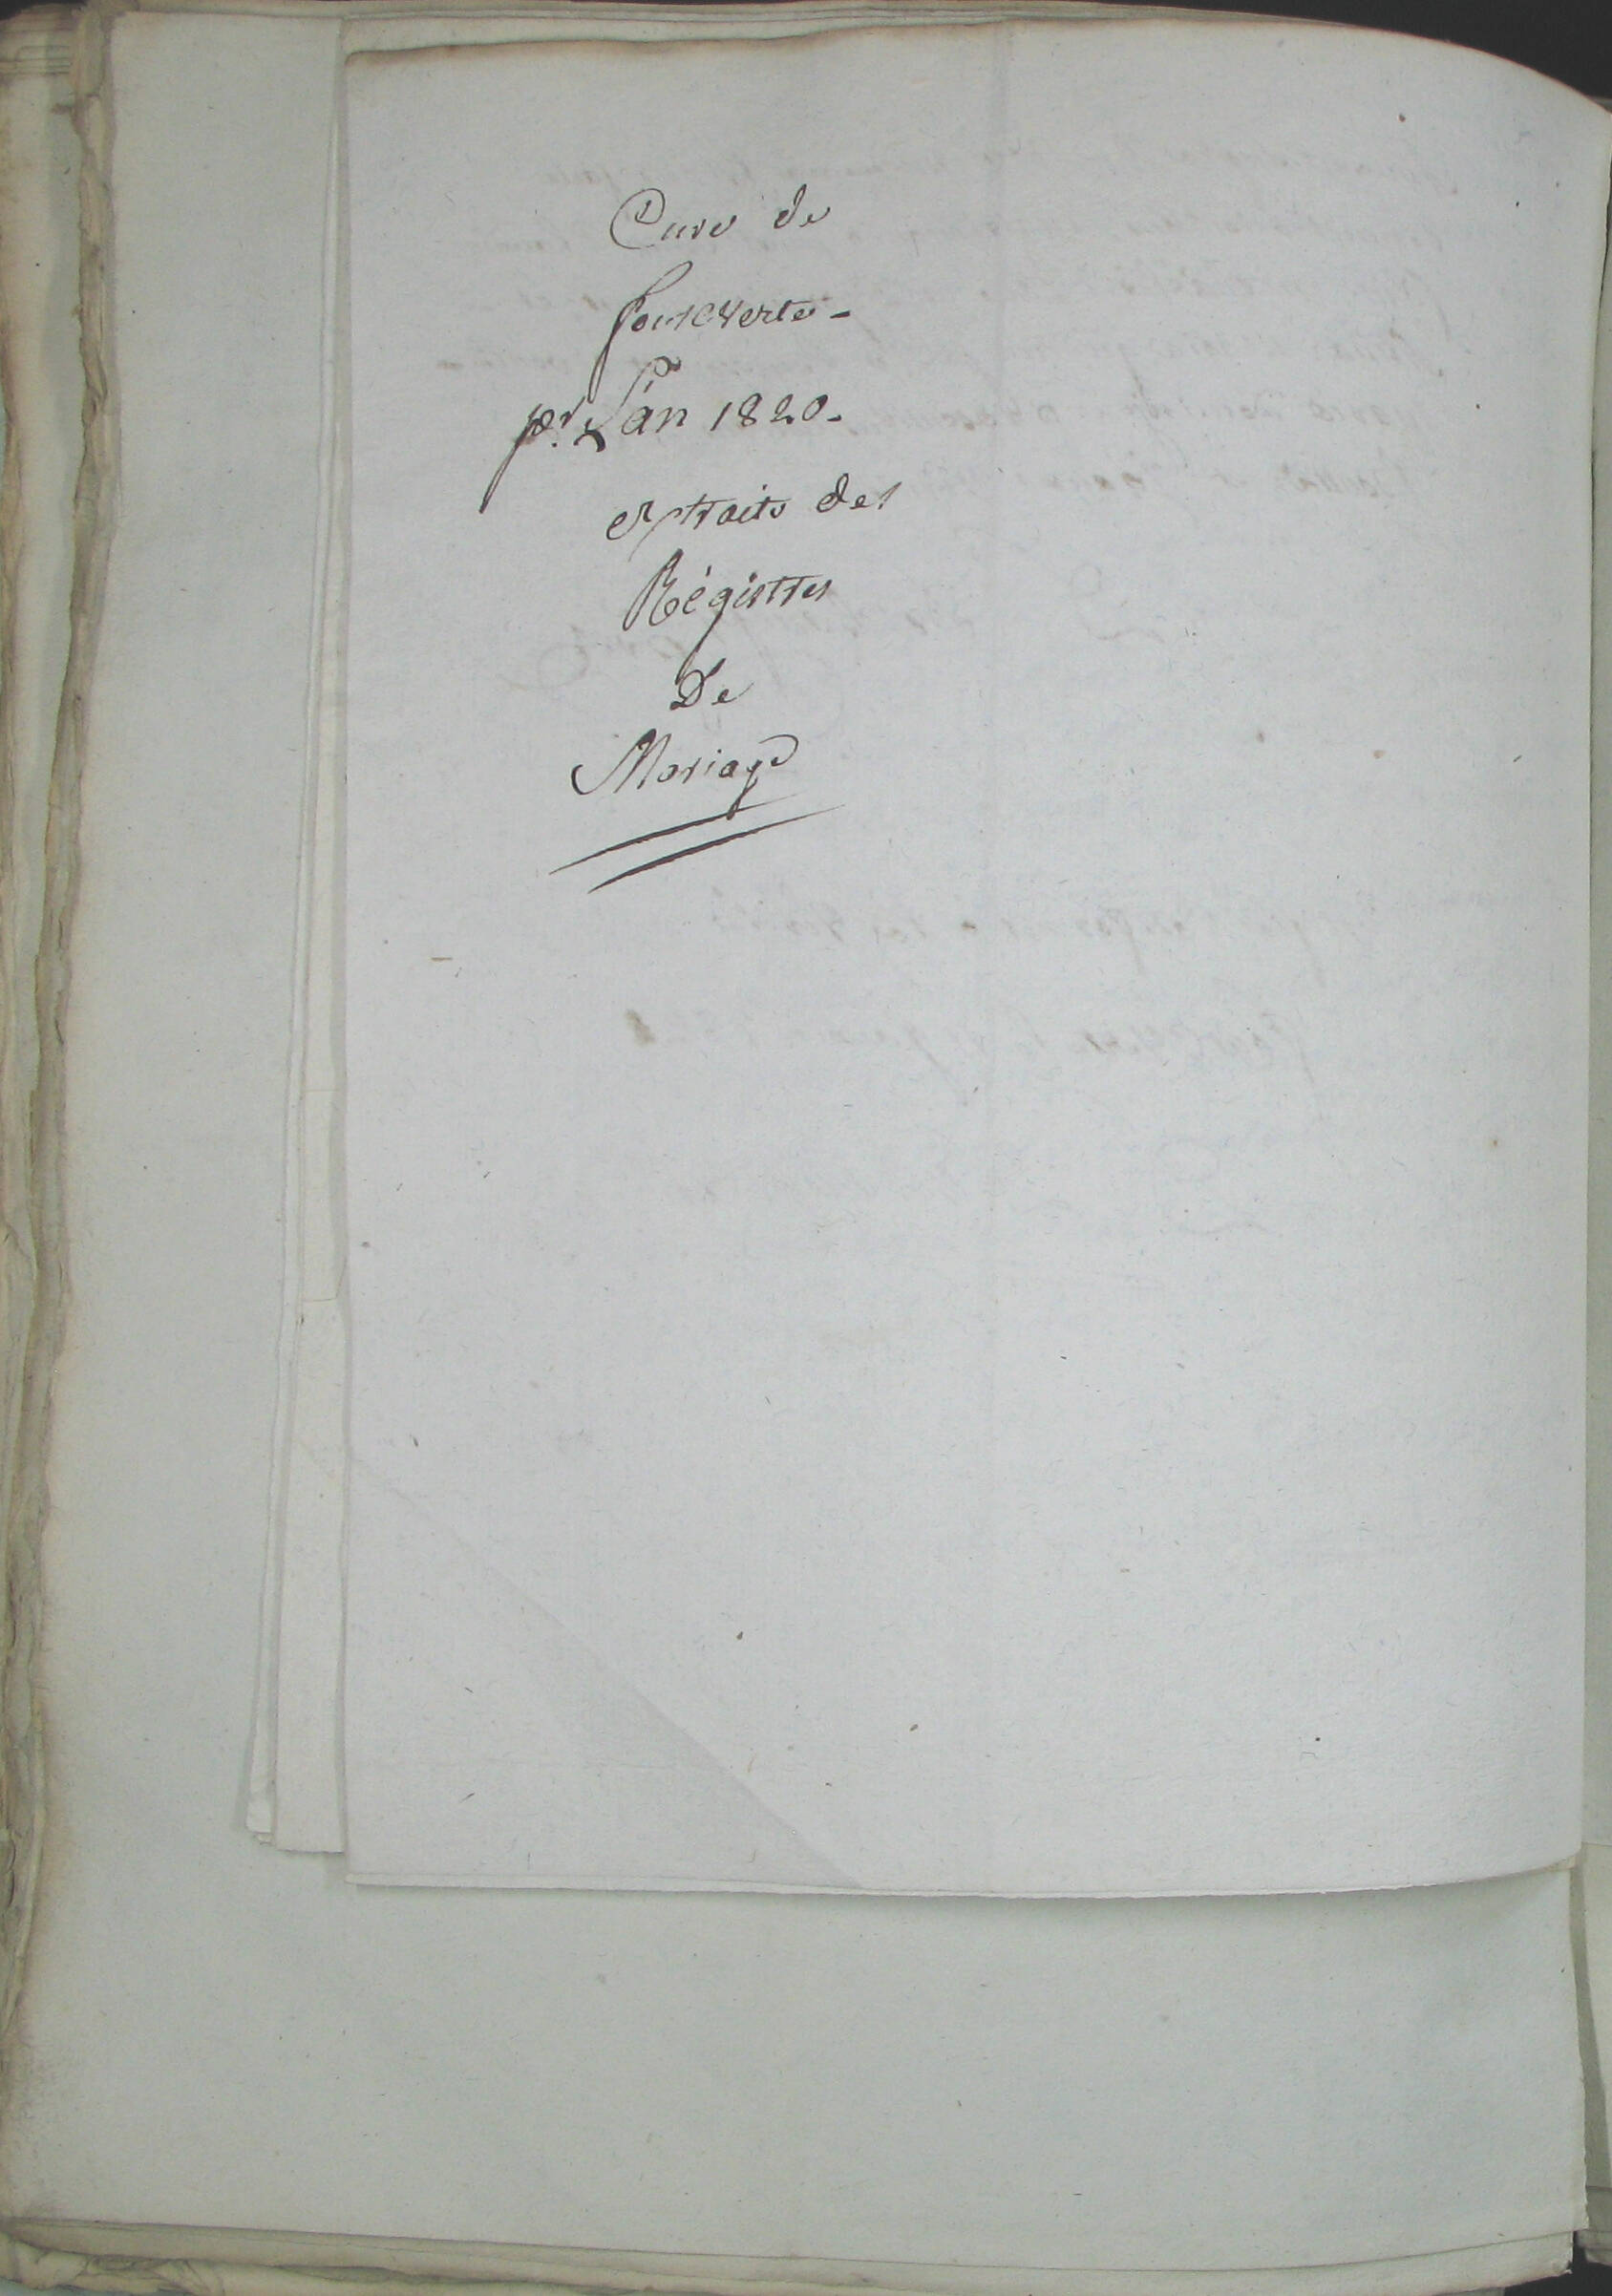 Cure de
fontCverte -
pr. L'an 1820.
extraits des
Régistres
De
Mariage